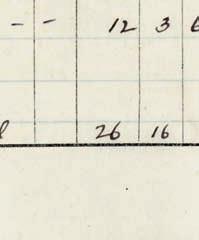 - - 12 3 6
26 16